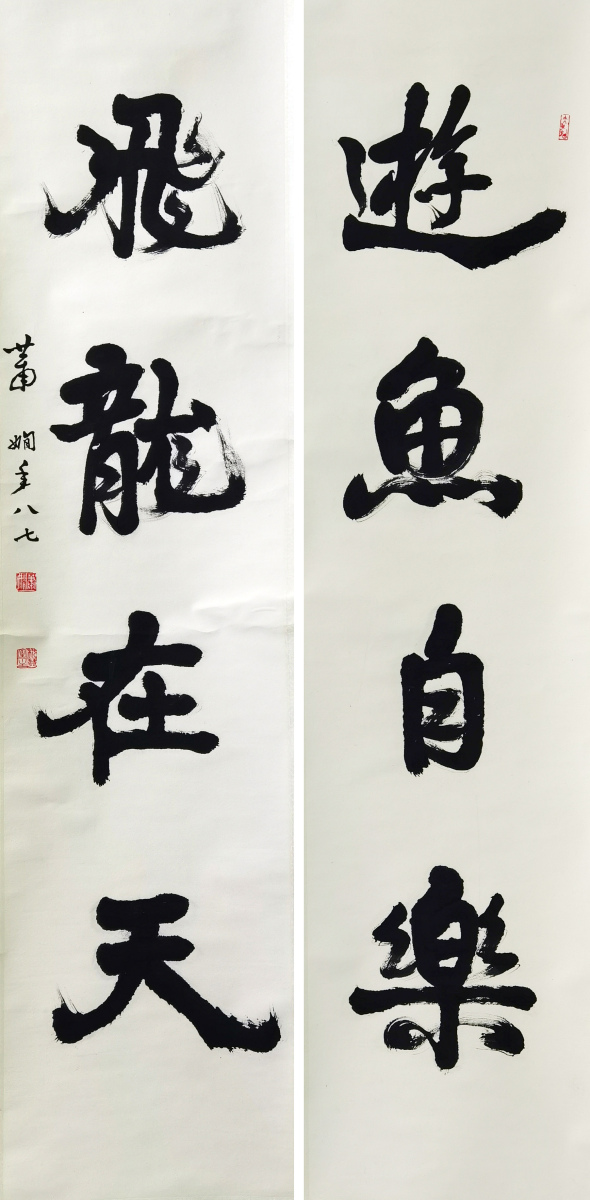 遊魚自樂
飛龍在天
蕭嫻年八七